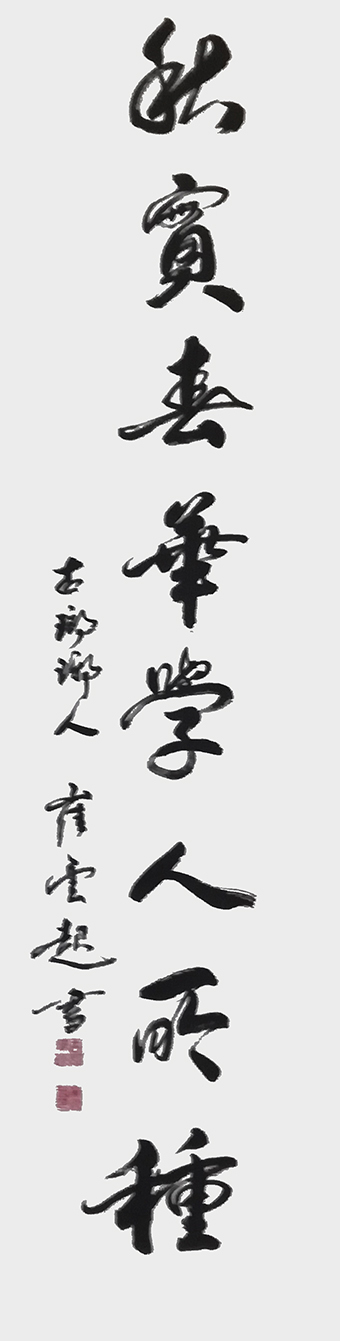 秋實春華學人所種
古瑯琊人 崔雲起書